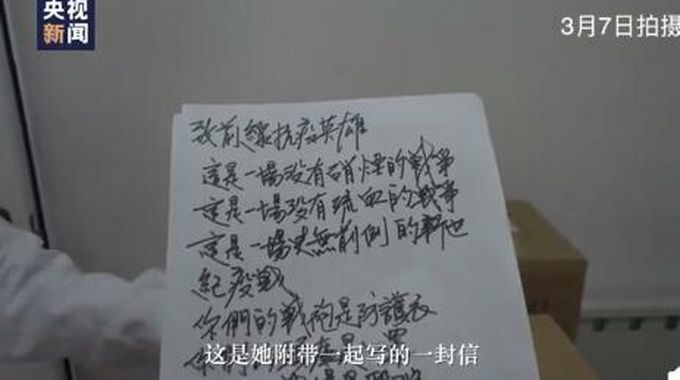 央视
新闻
3月7日拍摄
致前線抗疫英雄
這是一場没有硝煙的戰爭
這是一場没有流血的戰爭
這是一場史無前例的
紀疫戰
你們的戰袍是防護衣
你們的
這是她附带一起写的一封信